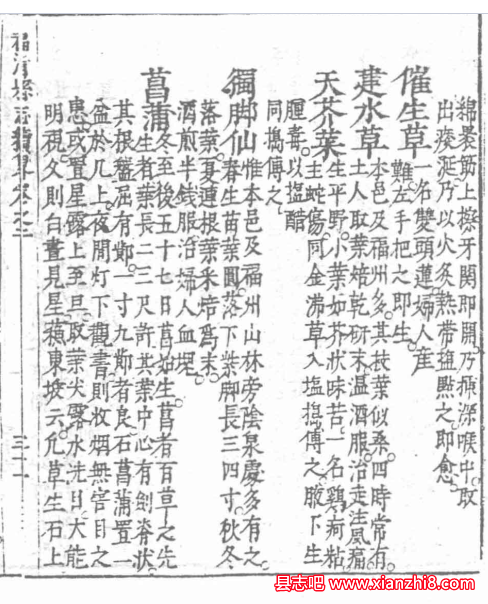 綿裹筯上擦牙関即開乃插深喉中取
出痰涎乃以火炙熱帶塩㸃之即愈
催生草一名雙頭蓮婦人産
難左手把之即生
建水草本邑及福州多其枝葉似桑四時常有
土人取葉焙乾硏末温酒服治走注風痛
天芥菜生平野小葉如芥狀味苦一名鷄疴粘
主蛇傷同金沸草入塩搗傅之腋下生
腫毒以塩醋
同搗傅之
獨脚仙惟本邑及福州山林旁陰泉處多有之
春生苗葉圓落下葉脚長三四寸秋冬
落葉夏連根葉采焙爲末
酒煎半錢服治婦人血塊
菖蒲冬至後五十七日菖始生菖者百草之先
生者葉長二三尺許其葉中心有劍脊狀
其根盤屈有節一寸九節者良石菖蒲置一
盆於几上夜間灯下觀書則收烟無害目之
患或置星露上至旦取葉尖露水洗目大能
明視久則白晝見星蘓東坡云凡草生石上
福清縣志續畧卷之二
三十一
县志吧
www.xianzhi8.com